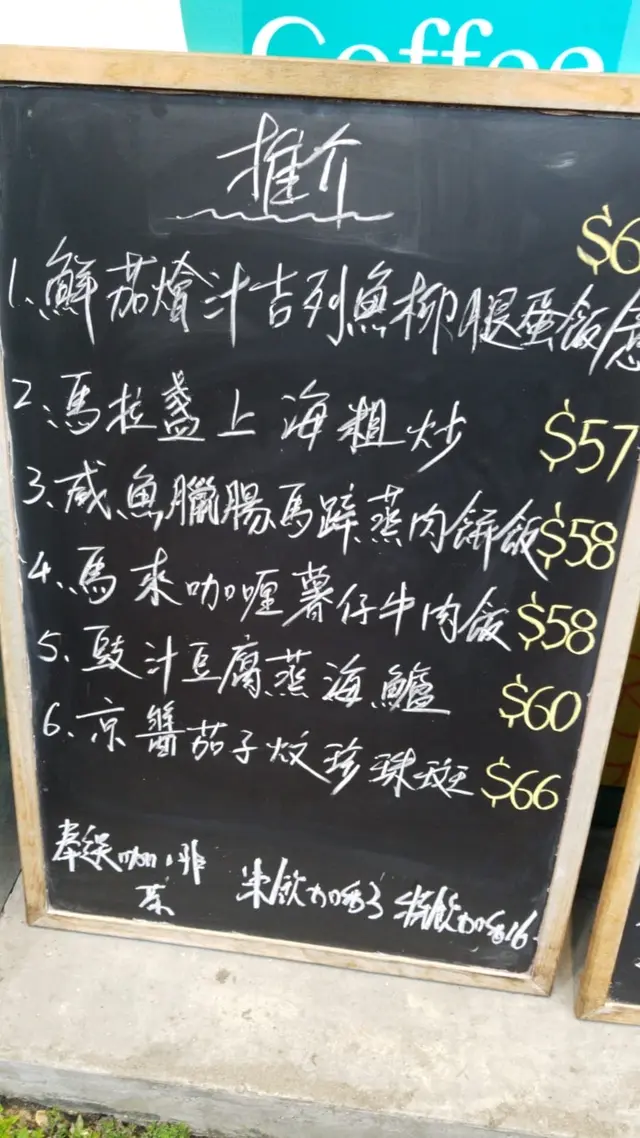 Coffee
推介
$6
1、鮮茄燴汁吉列魚柳腿蛋飯
2、馬拉盞上海粗炒 $57
3、咸魚臘腸馬蹄蒸肉餅飯 $58
4、馬來咖喱薯仔牛肉飯 $58
5、豉汁豆腐蒸海鱸 $60
6、京醬茄子炆珍珠斑 $66
奉送咖啡
茶 凍飲加$3 特飲加$16